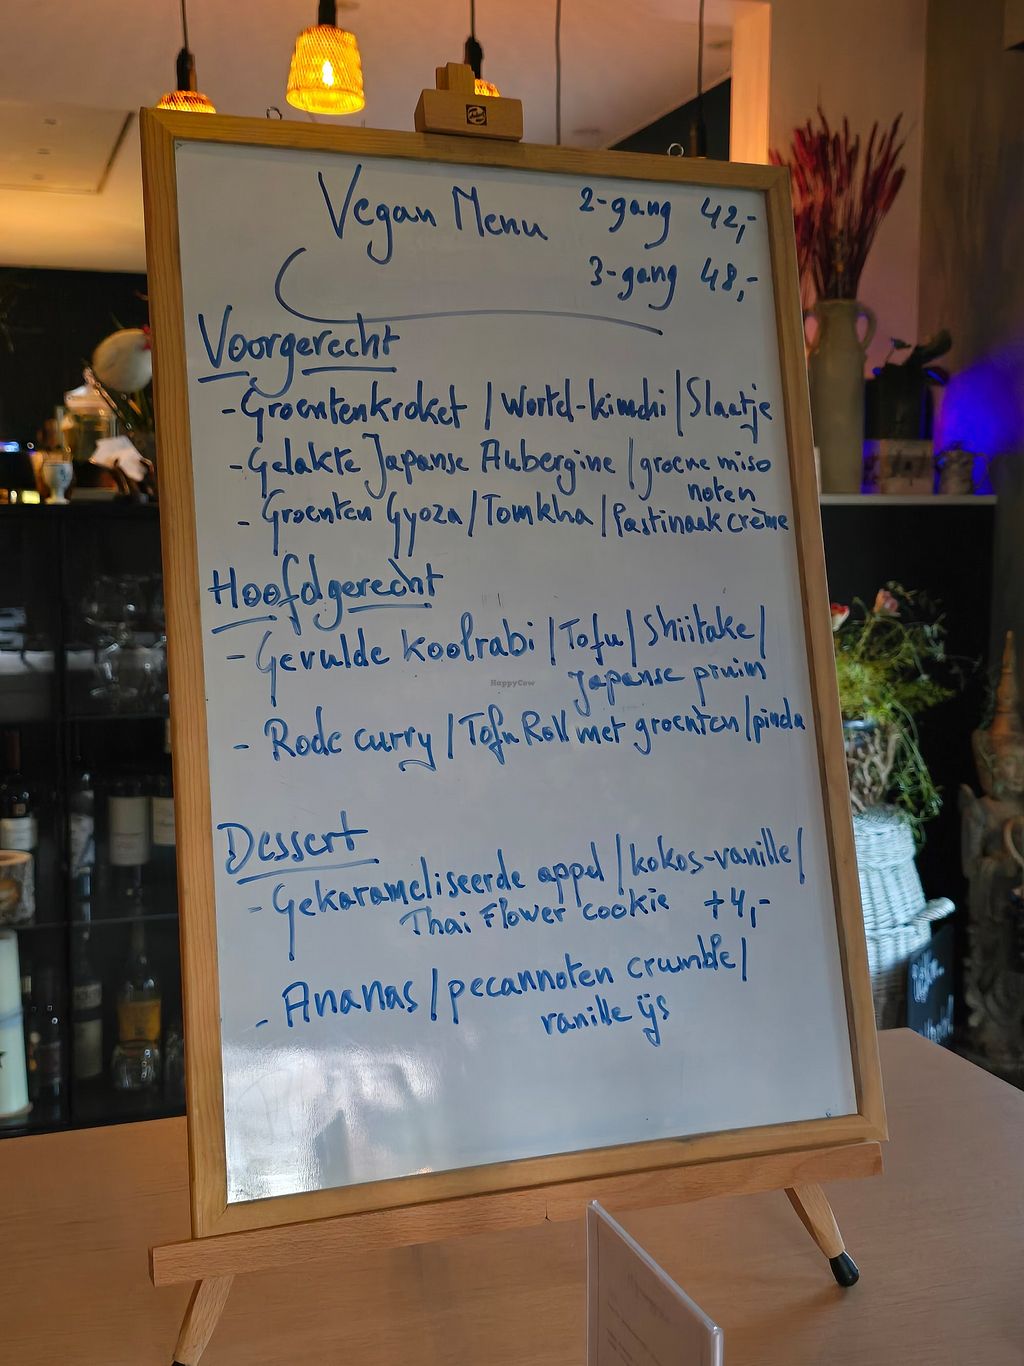 Vegan Menu 2-gang 42,-
3-gang 48,-
Voorgerecht
- Groentenkroket / Wortel-kimchi / Slaatje
- Gelakte Japanse Aubergine / groene miso
noten
- Groenten Gyoza / Tomkha / Pastinaak crème
Hoofdgerecht
- Gevulde koolrabi / Tofu / Shiitake /
Japanse pruim
- Rode curry / Tofu Roll met groenten / pinda
Dessert
- Gekarameliseerde appel / kokos-vanille /
Thai Flower cookie +4,-
- Ananas / pecannoten crumble /
vanille ijs
HappyCow